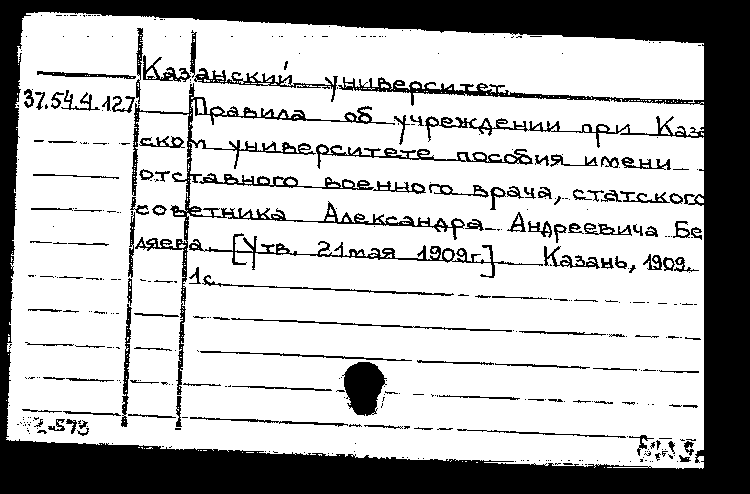 Казанский университет.
37.54.4.127 Правила об учреждении при Каза
ском университете пособия имени
отставного военного врача, статского
советника Александра Андреевича Бе
ляева. [Утв. 21 мая 1909г.] Казань, 1909.
1с.
42-573